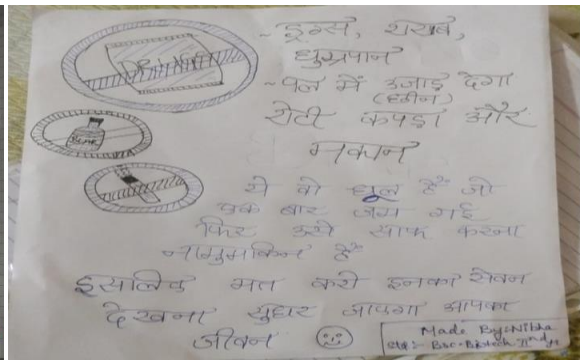 ~ ड्रग्स, शराब,
धुम्रपान
~ पल में उजाड़ देगा
(छीन)
रोटी कपड़ा और
मकान
ये वो धूल हैं जो
एक बार जम गई
फिर उसे साफ करना
नामुमकिन हैं
इसलिए मत करो इनका सेवन
देखना सुधर जाएगा आपका
जीवन
Made By:- Nibha
Bsc-Biotech IInd yr